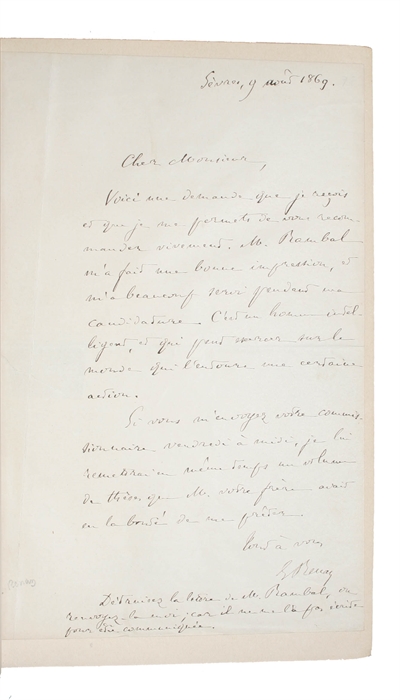 Sèvres, 9 août 1869.
Cher Monsieur,
Voici une demande que je reçois
et que je me permets de vous recom-
mander vivement. M. Rambal
m'a fait une bonne impression, et
m'a beaucoup servi pendant ma
candidature. C'est un homme intel-
ligent, et qui peut exercer sur le
monde qui l'entoure une certaine
action.
Si vous m'envoyez votre commis-
sionnaire vendredi à midi, je lui
remettrai en même temps un volume
de thèse que M. votre frère avait
eu la bonté de me prêter.
Tout à vous
E. Renan
Détruisez la lettre de M. Rambal, ou
renvoyez-la moi; car il ne me l'a pas écrite
pour être communiquée.